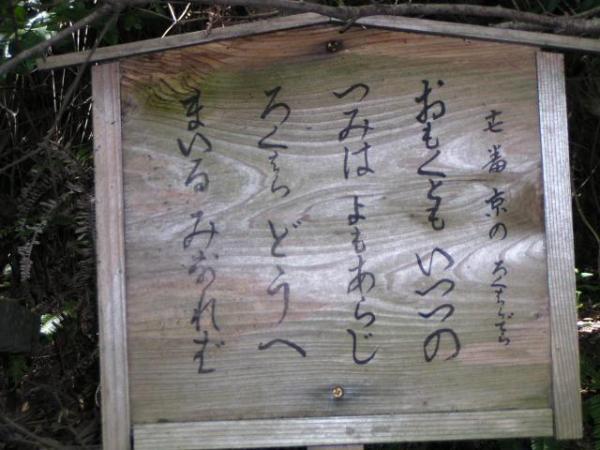 十七番 京の ろくはらでら
おもくとも いつつの
つみは よもあらじ
ろくはら どうへ
まいる みなれば